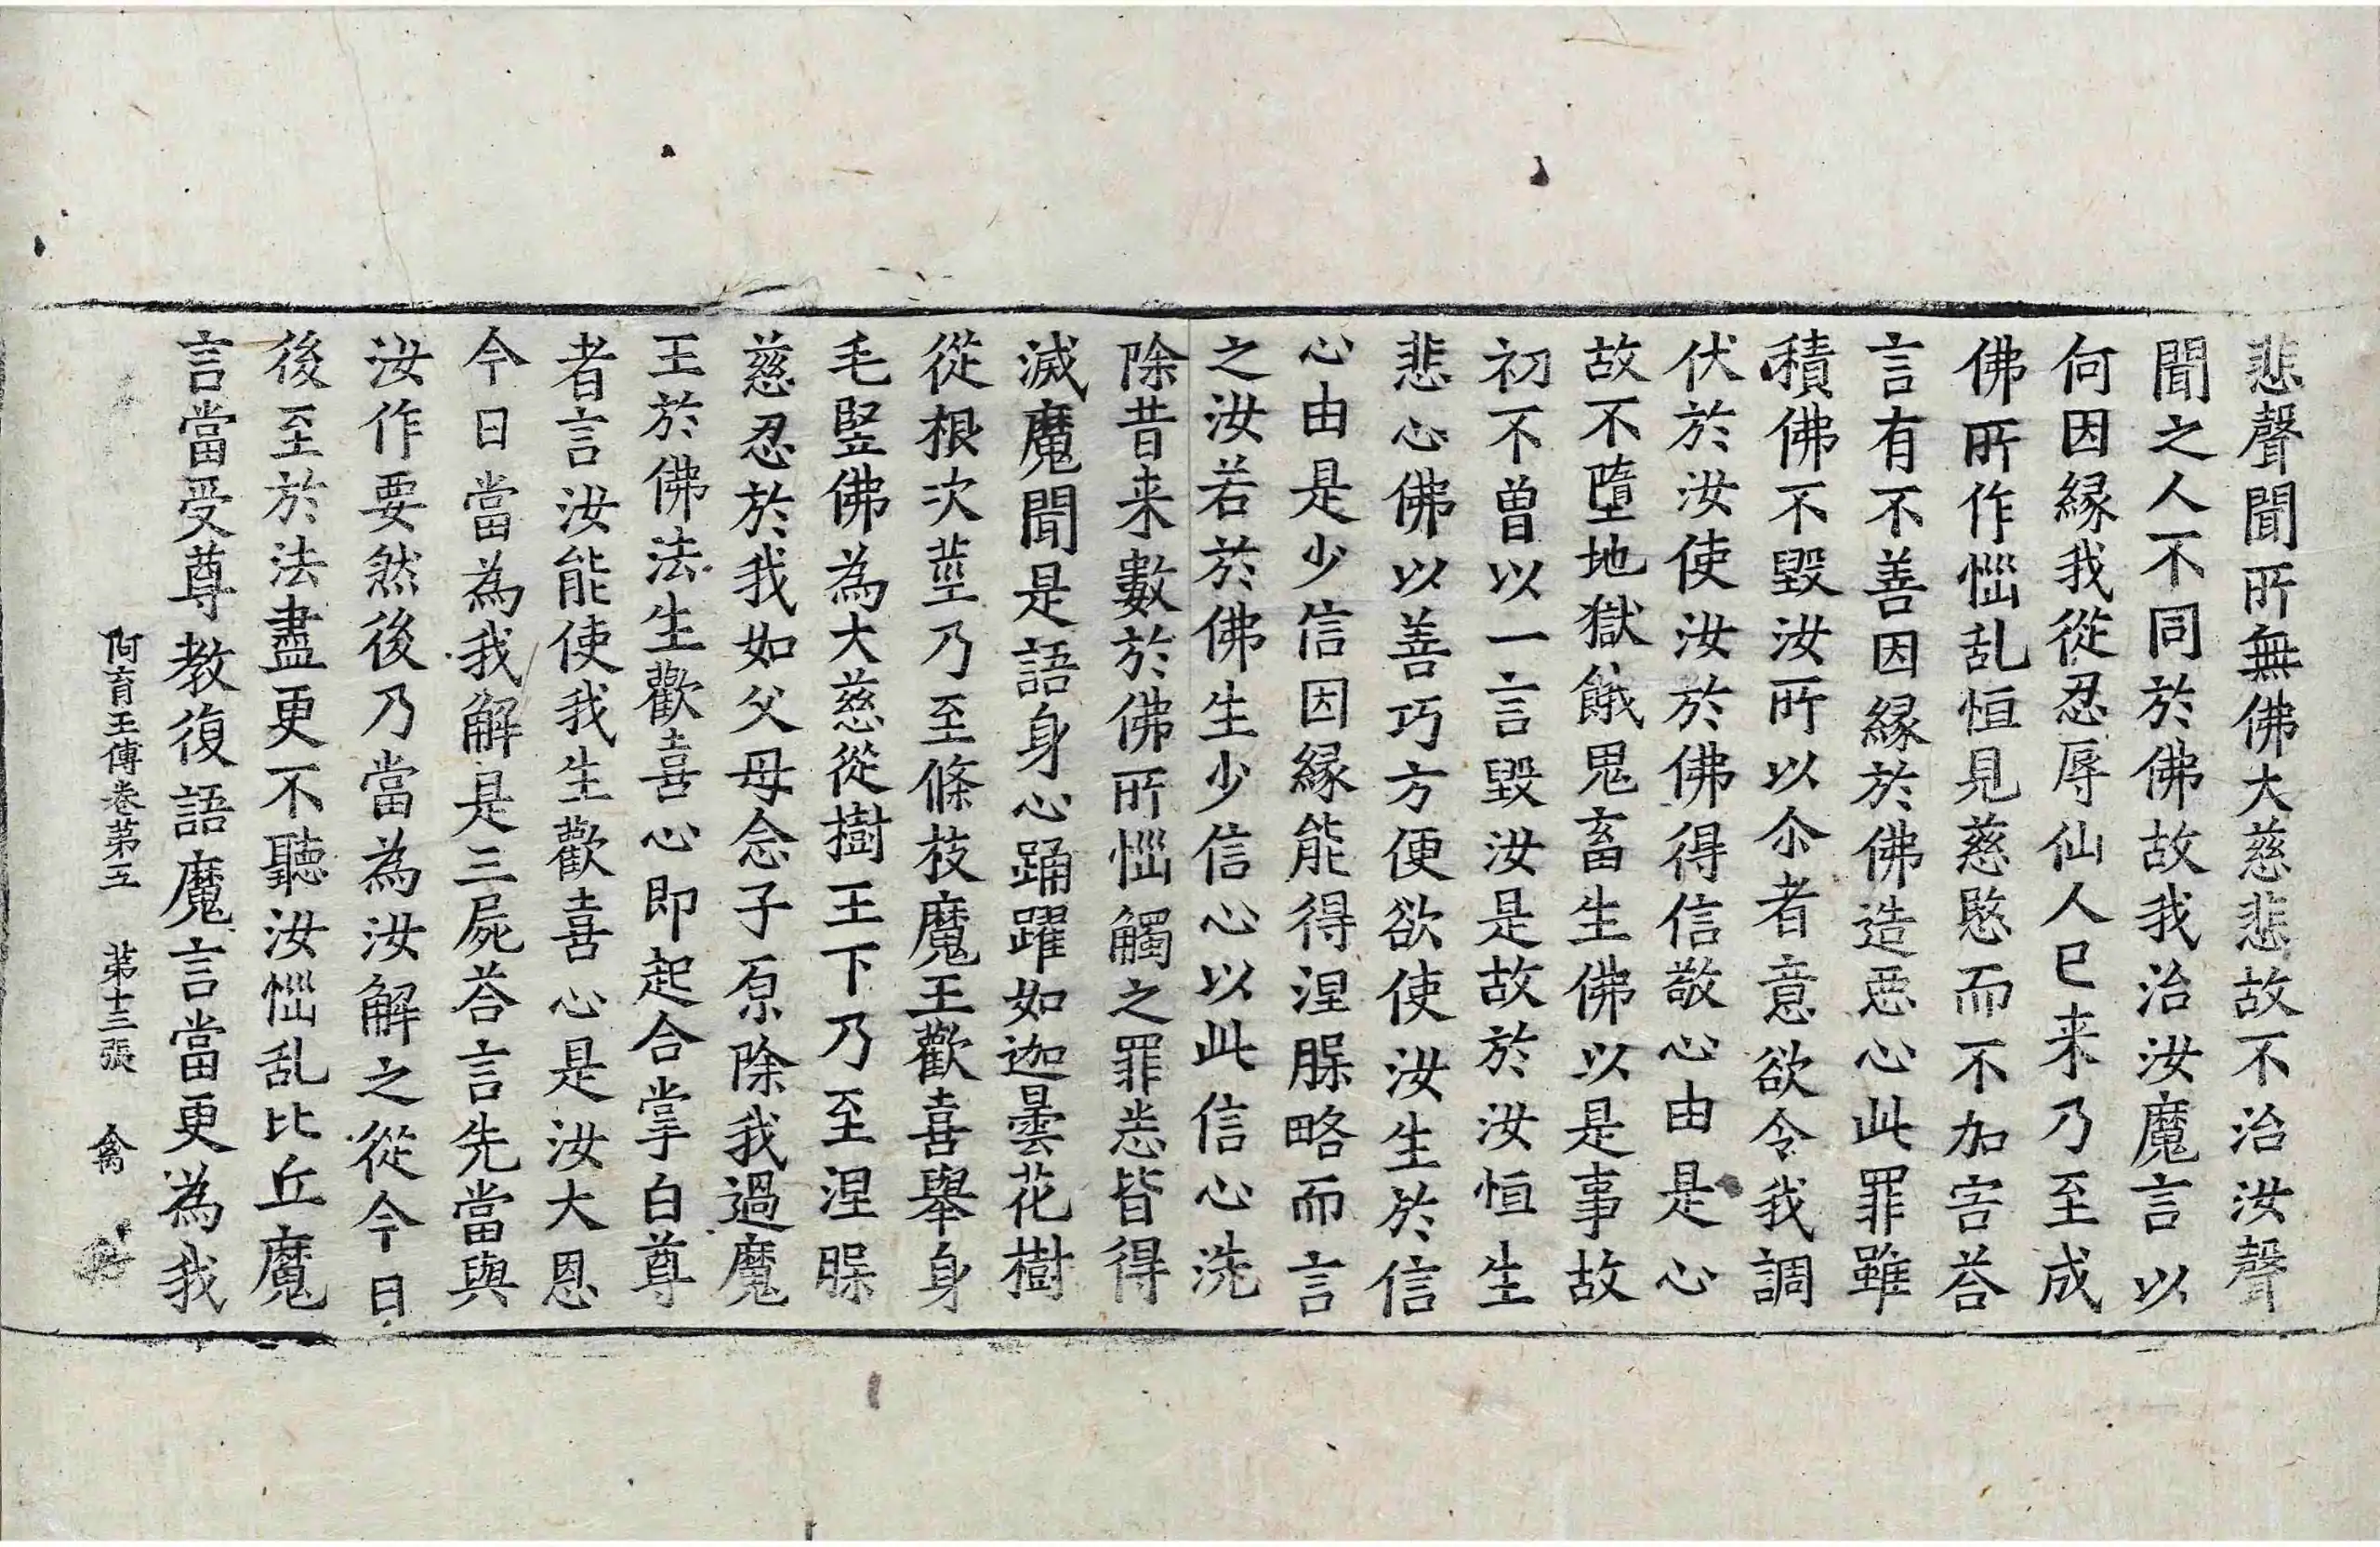 悲聲聞所無佛大慈悲故不治汝聲
聞之人不同於佛故我治汝魔言以
何因縁我從忍辱仙人已来乃至成
佛所作惱乱恒見慈愍而不加害荅
言有不善因縁於佛造惡心此罪雖
積佛不毀汝所以尒者意欲令我調
伏於汝使汝於佛得信敬心由是心
故不墮地獄餓鬼畜生佛以是事故
初不曽以一言毀汝是故於汝恒生
悲心佛以善巧方便欲使汝生於信
心由是少信因縁能得涅槃略而言
之汝若於佛生少信心以此信心洗
除昔来數於佛所惱觸之罪恙皆得
滅魔聞是語身心踊躍如迦曇花樹
從根次莖乃至條枝魔王歡喜舉身
毛竪佛為大慈從樹王下乃至涅槃
慈忍於我如父母念子原除我過魔
王於佛法生歡喜心即起合掌白尊
者言汝能使我生歡喜心是汝大恩
今日當為我解是三屍荅言先當與
汝作要然後乃當為汝解之從今日
後至於法盡更不聽汝惱乱比丘魔
言當受尊教復語魔言當更為我
阿育王傳卷苐五 苐十三張 禽